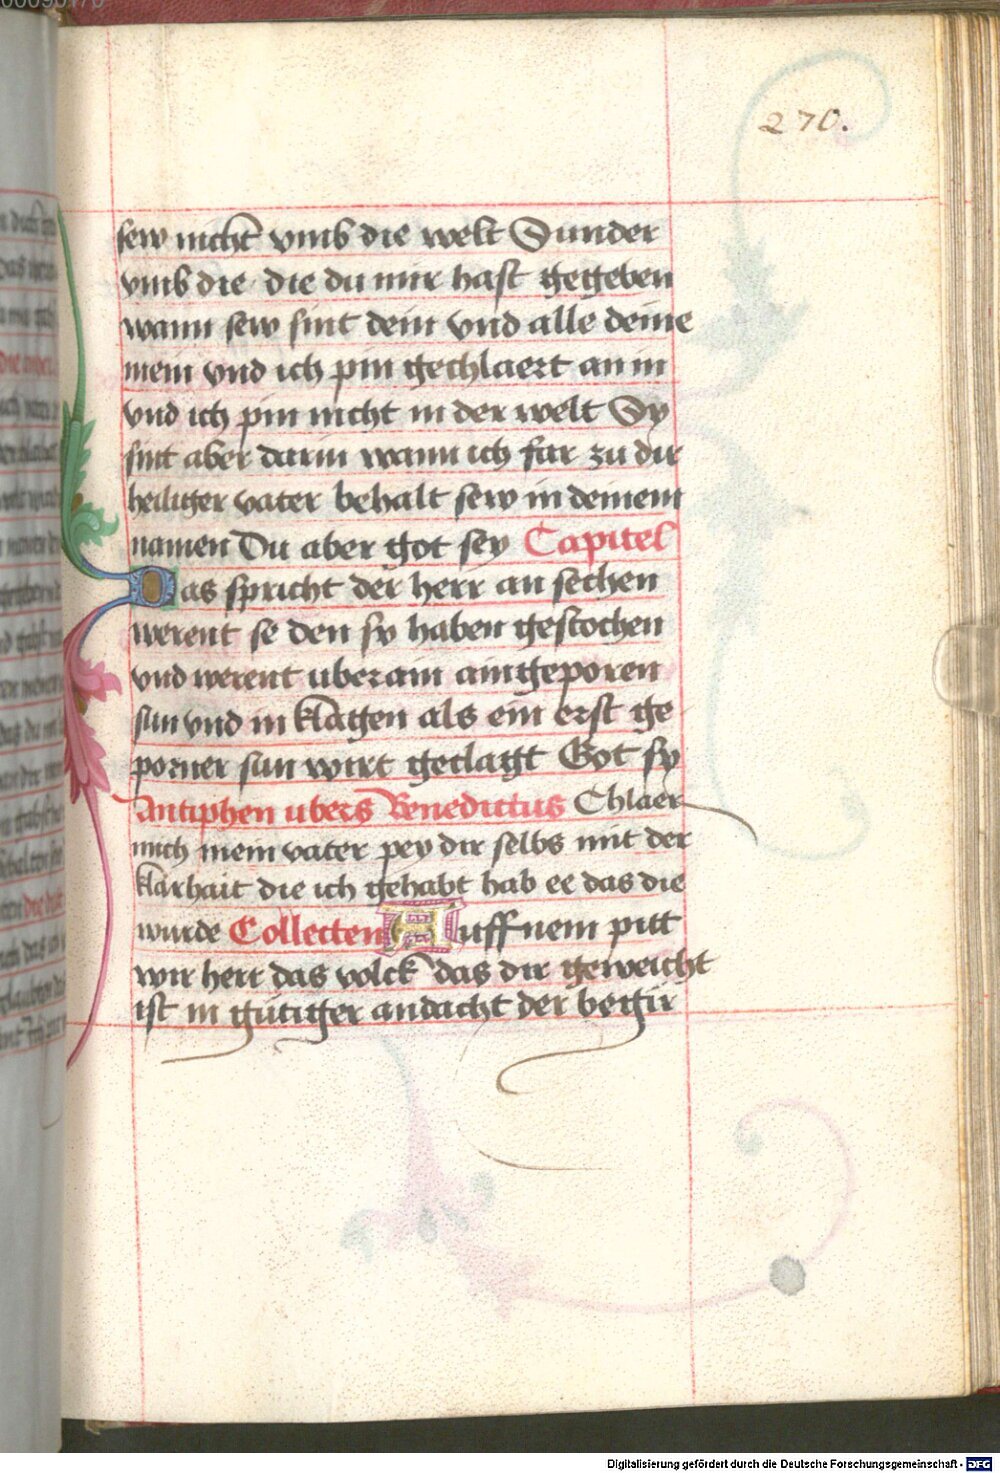 270.
sew nicht vmb die welt Sunder
vmb die die du mir hast gegeben
wann sew sint dein vnd alle deine
mein vnd ich pin gechlaert an in
vnd ich pin nicht in der welt Sy
sint aber darin wann ich far zu dir
heiliger vater behalt sew in deinem
namen Du aber got sey Capitel
Das spricht der herr an sechen
werent se den sy haben gestochen
vnd werent uberain aingeporen
sun vnd in klagen als ein erst ge
porner sun wirt geclagt Got sy
Antiphen ubers Benedictus Chlaer
mich mein vater pey dir selbs mit der
klarhait die ich gehabt hab ee das die
wurde Collecten Auff nem pitt
wir herr das volck das dir geweicht
ist in gutiger andacht der begir
Digitalisierung gefördert durch die Deutsche Forschungsgemeinschaft - DFG